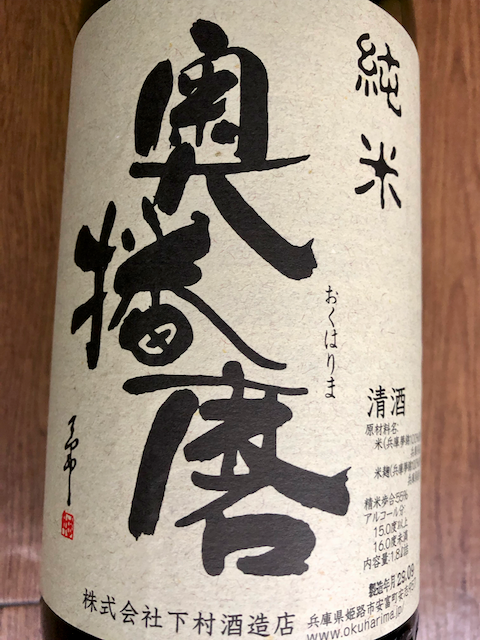 純米
奥播磨
おくはりま
清酒
原材料名
米(兵庫夢錦
米麹(兵庫夢錦
精米歩合55%
アルコール分
15.0度以上
16.0度未満
内容量:1.8ℓ詰
製造年月 29.09
株式会社下村酒造店
兵庫県姫路市安富町安志
www.okuharima.jp/